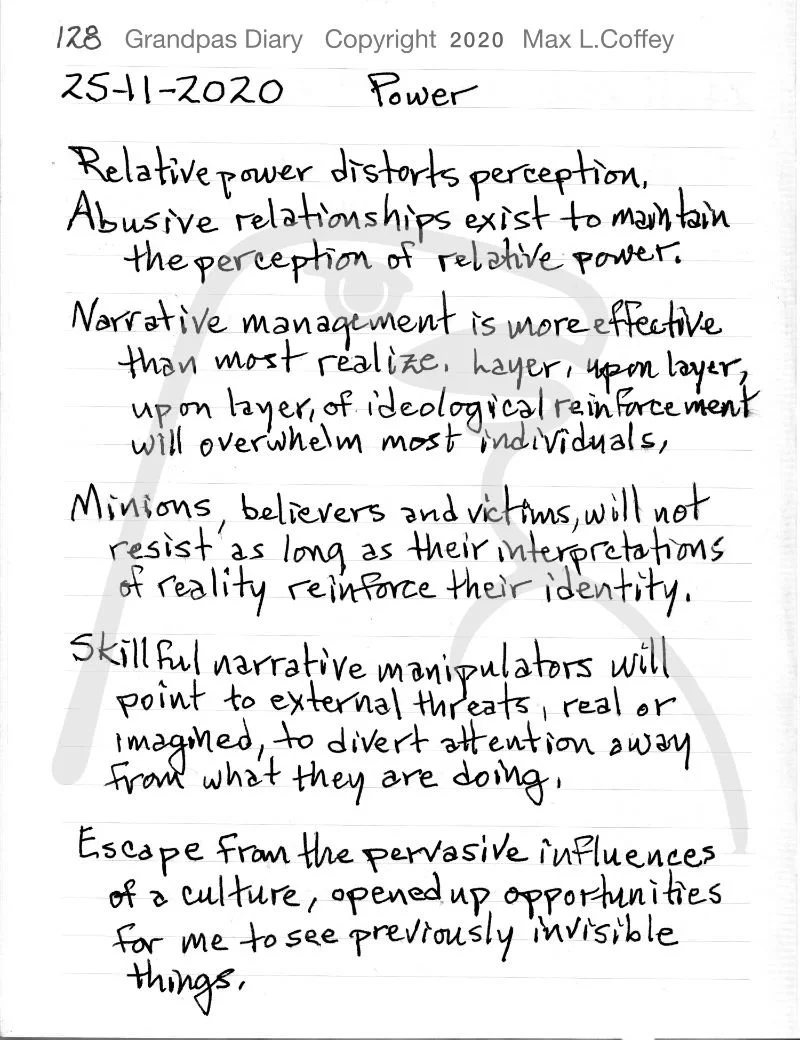 128 Grandpas Diary Copyright 2020 Max L.Coffey
25-11-2020 Power
Relative power distorts perception.
Abusive relationships exist to maintain
the perception of relative power.
Narrative management is more effective
than most realize. Layer, upon layer,
upon layer, of ideological reinforcement
will overwhelm most individuals,
Minions, believers and victims, will not
resist as long as their interpretations
of reality reinforce their identity.
Skillful narrative manipulators will
point to external threats, real or
imagined, to divert attention away
from what they are doing.
Escape from the pervasive influences
of a culture, opened up opportunities
for me to see previously invisible
things.